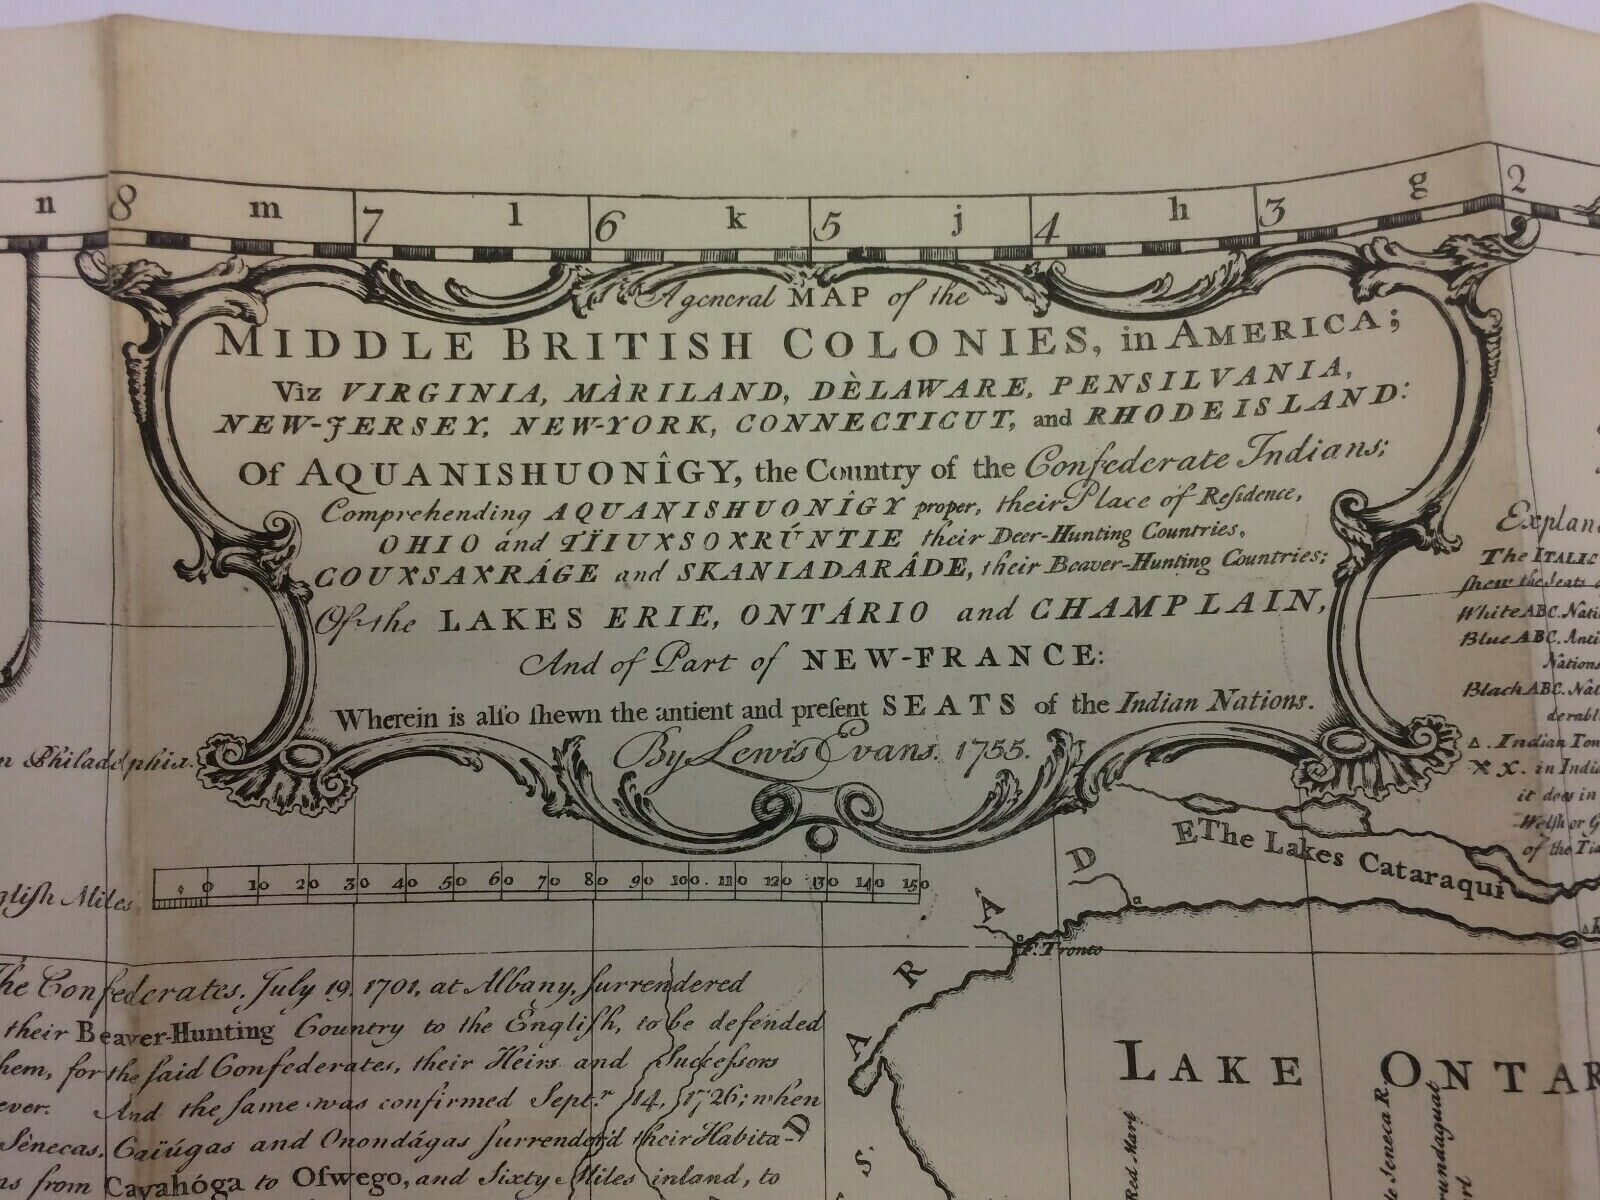 n 8 m 7 l 6 k 5 j 4 h 3 g 2
A general MAP of the
MIDDLE BRITISH COLONIES, in AMERICA;
Viz VIRGINIA, MÀRILAND, DÈLAWARE, PENSILVANIA,
NEW-JERSEY, NEW-YORK, CONNECTICUT, and RHODE ISLAND:
Of AQUANISHUONÎGY, the Country of the Confederate Indians;
Comprehending AQUANISHUONÎGY proper, their Place of Reſidence,
OHIO and TÏIUXSOXRÚNTIE their Deer-Hunting Countries,
COUXSAXRÁGE and SKANIADARÂDE, their Beaver-Hunting Countries;
Of the LAKES ERIE, ONTÁRIO and CHAMPLAIN,
And of Part of NEW-FRANCE:
Wherein is alſo ſhewn the antient and preſent SEATS of the Indian Nations.
By Lewis Evans. 1755.
n Philadelphia.
gliſh Miles
0 10 20 30 40 50 60 70 80 90 100. 110 120 130 140 150
Explan
The ITALIC
ſhew the Seats
White ABC. Nati
Blue ABC. Anti
Nations
Black ABC. Nat
derabl
∆. Indian Tow
X X. in India
it does in
Welſh or G
of the
E The Lakes Cataraqui
D
A
R
A
D
S.
F. Tronto
LAKE ONTAR
Red Mart
Seneca R.
The Confederates, July 19, 1701, at Albany, ſurrendered
their Beaver-Hunting Country to the Engliſh, to be defended
hem, for the ſaid Confederates, their Heirs and Succeſsors
ever. And the ſame was confirmed Sept.r 14, 1726; when
Sènecas, Caïúgas and Onondágas ſurrender'd their Habita-
ns from Cayahóga to Oſwego, and Sixty Miles inland, to